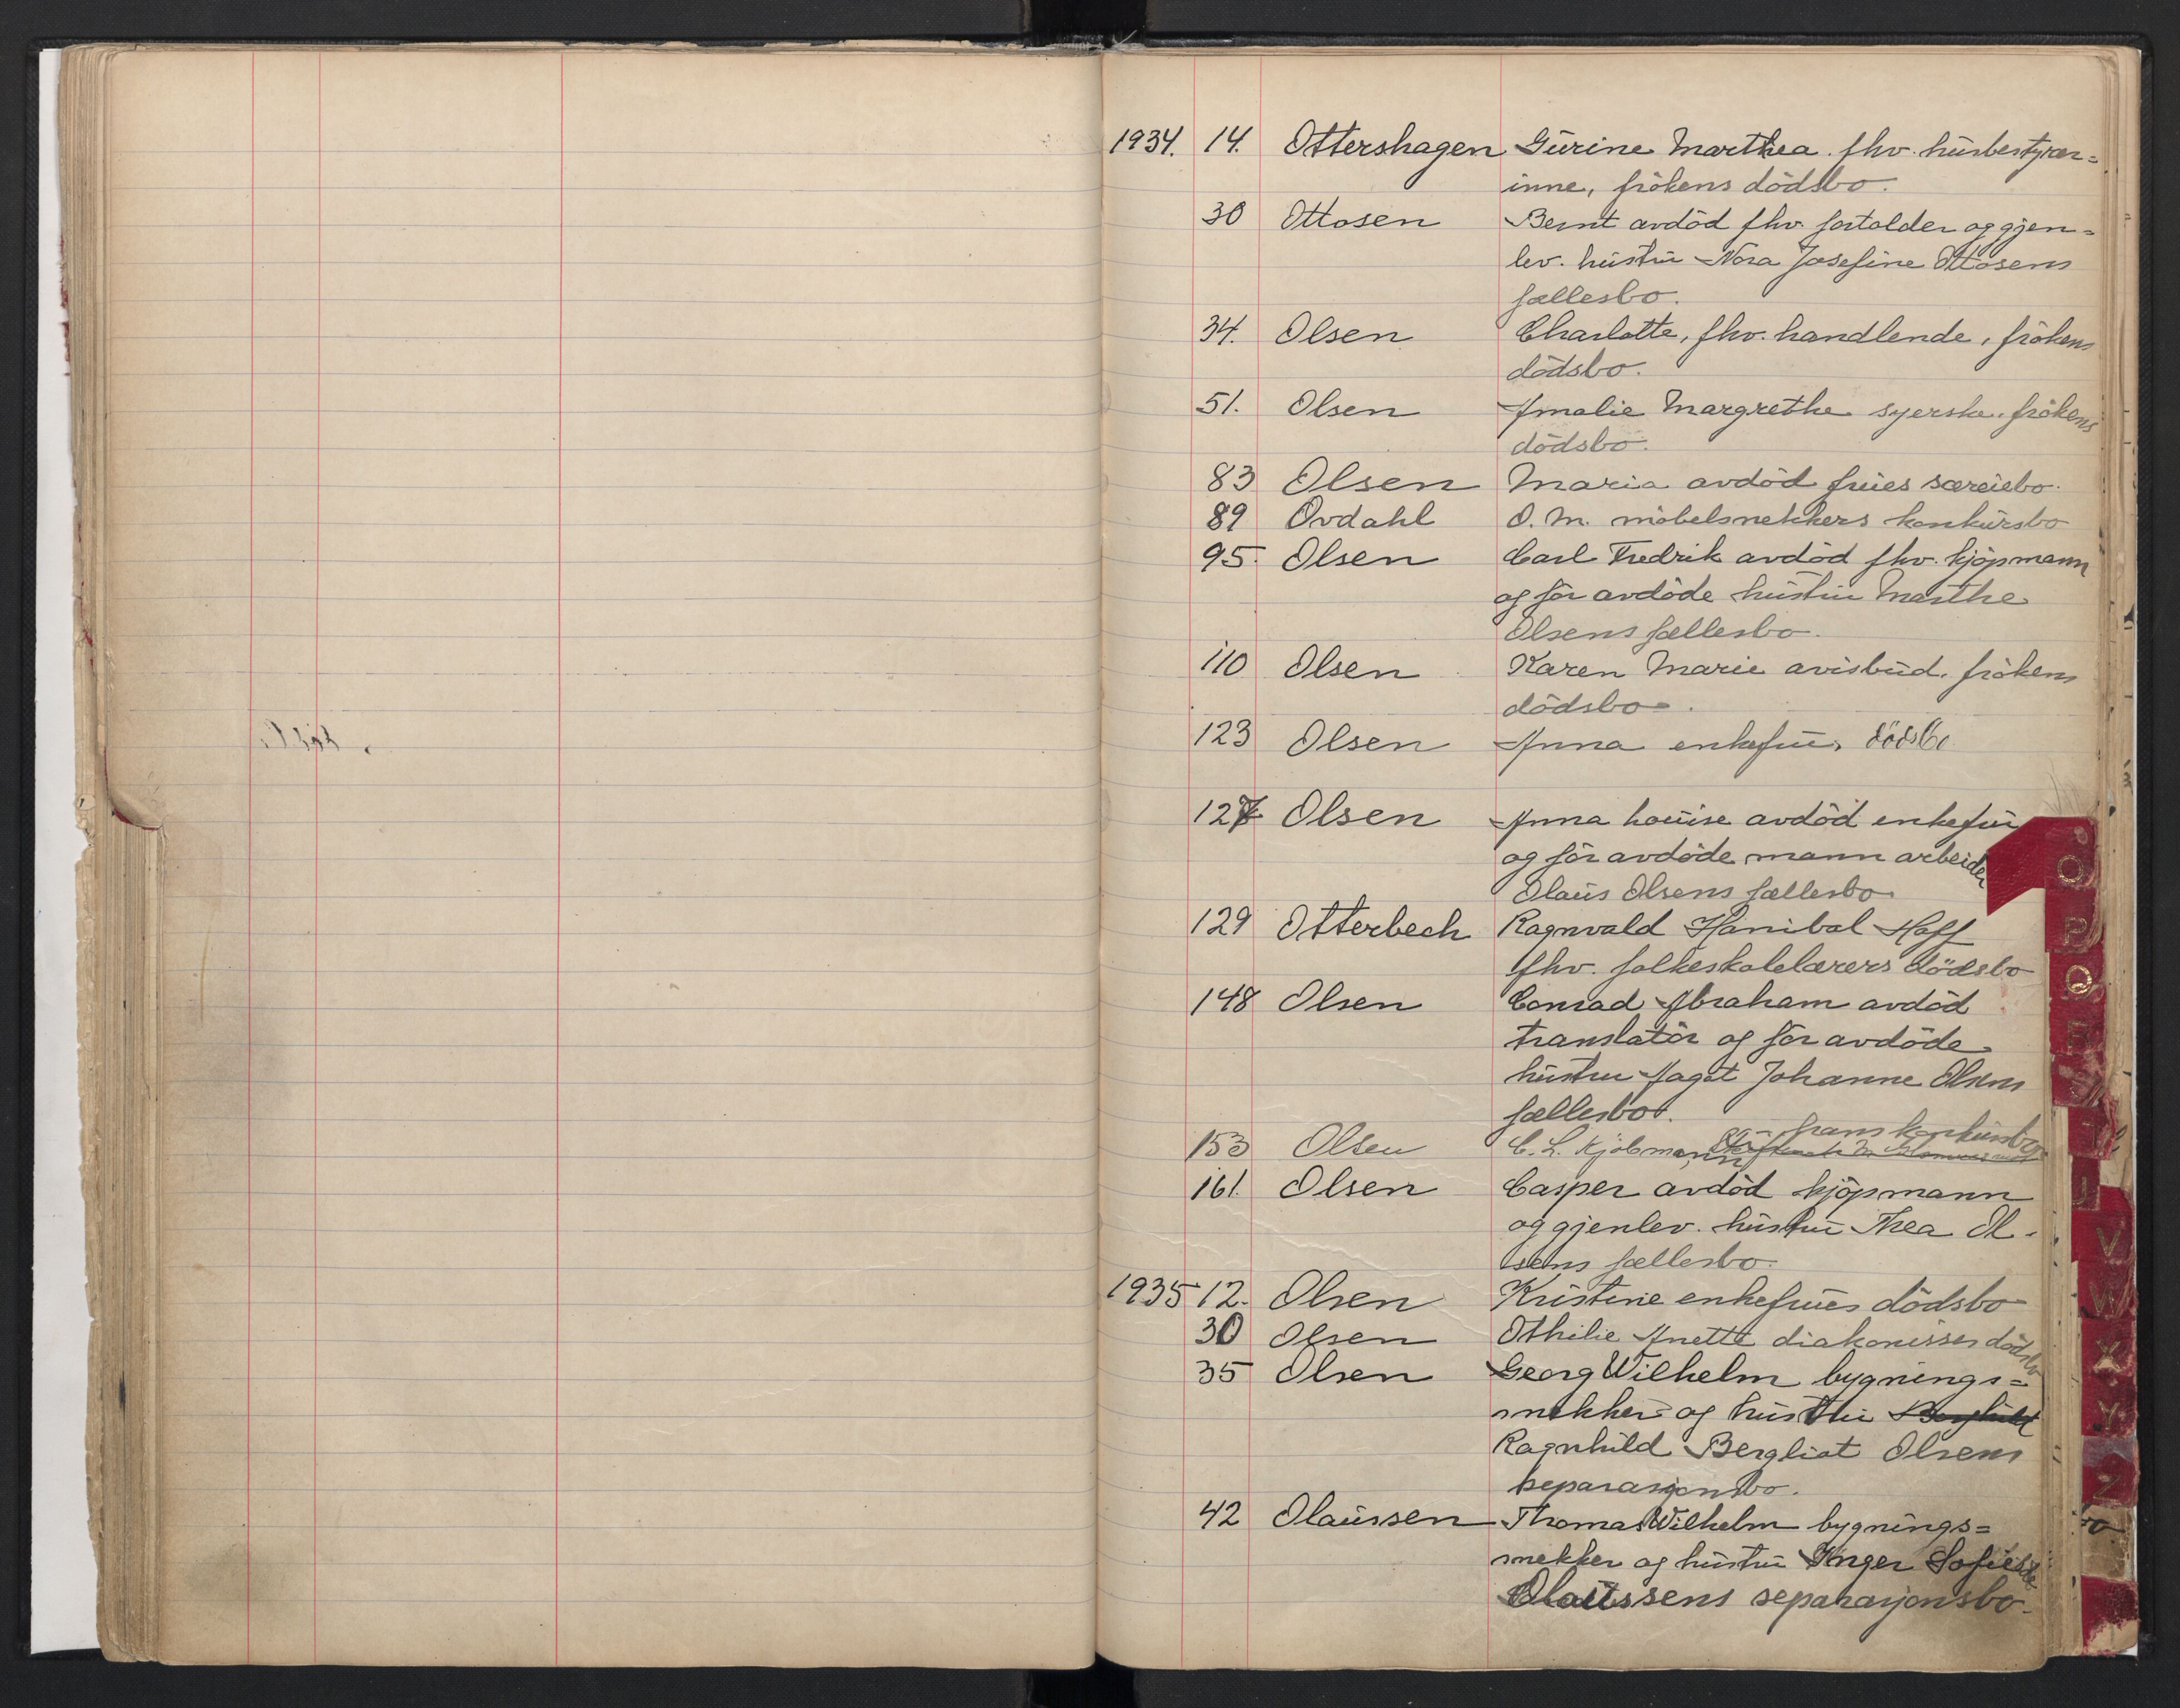 1934. 14. Ottershagen Gurine Marthea fhv. husbestyrer=
inne, frökens dödsbo.
30 Ottosen Bernt avdöd fhv. fortolder og gjen=
lev. hustru Nora Josefine Ottosens
fællesbo.
34. Olsen Charlotte, fhv. handlende, frökens
dödsbo.
51. Olsen Amalie Margrethe syerske, frökens
dödsbo.
83 Olsen Maria avdöd frues særeiebo.
89 Ovdahl O. M. möbelsnekkers konkursbo
95. Olsen Carl Fredrik avdöd fhv. kjöpmann
og för avdöde hustru Marthe
Olsens fællesbo.
110 Olsen Karen Marie avisbud, frökens
dödsbo.
123 Olsen Anna enkefrus dödsbo
127 Olsen Anna Louise avdöd enkefru
og för avdöde mann arbeider
Olaus Olsens fællesbo
129 Otterbech Ragnvald Hanibal Hoff
fhv. folkeskolelærers dödsbo
148 Olsen Conrad Abraham avdöd
translatör og för avdöde
hustru Aagot Johanne Olsens
fællesbo.
153 Olsen C. L. Kjöbmann frans konkursbo
161. Olsen Casper avdöd kjöpmann
og gjenlev. hustru Thea Ol-
sens fællesbo.
1935 12. Olsen Kristine enkefrues dödsbo
30 Olsen Othilie Anette diakonisses dödsbo
35 Olsen Georg Wilhelm bygnings=
snekker og hustru
Ragnhild Bergliot Olsens
separasjonsbo.
42 Olaussen Thomas Wilhelm bygnings=
snekker og hustru Inger Sofie
Olaussens separasjonsbo.
O
P
Q
R
S
T
U
V
W
X
Y
Z